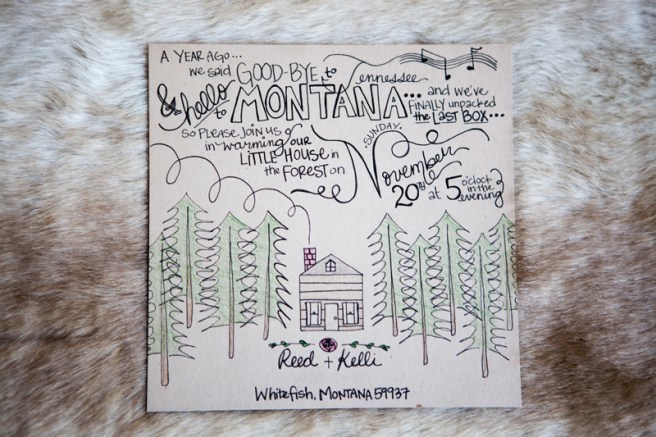 A YEAR AGO...
we said GOOD-BYE to Tennessee
& hello to MONTANA... and we've
FINALLY unpacked
the LAST BOX...
SO PLEASE JOIN US
in warming our
LITTLE HOUSE in
the FOREST on
SUNDAY,
November
20th at 5 o'clock
in the
evening
Reed + Kelli
Whitefish, MONTANA 59937